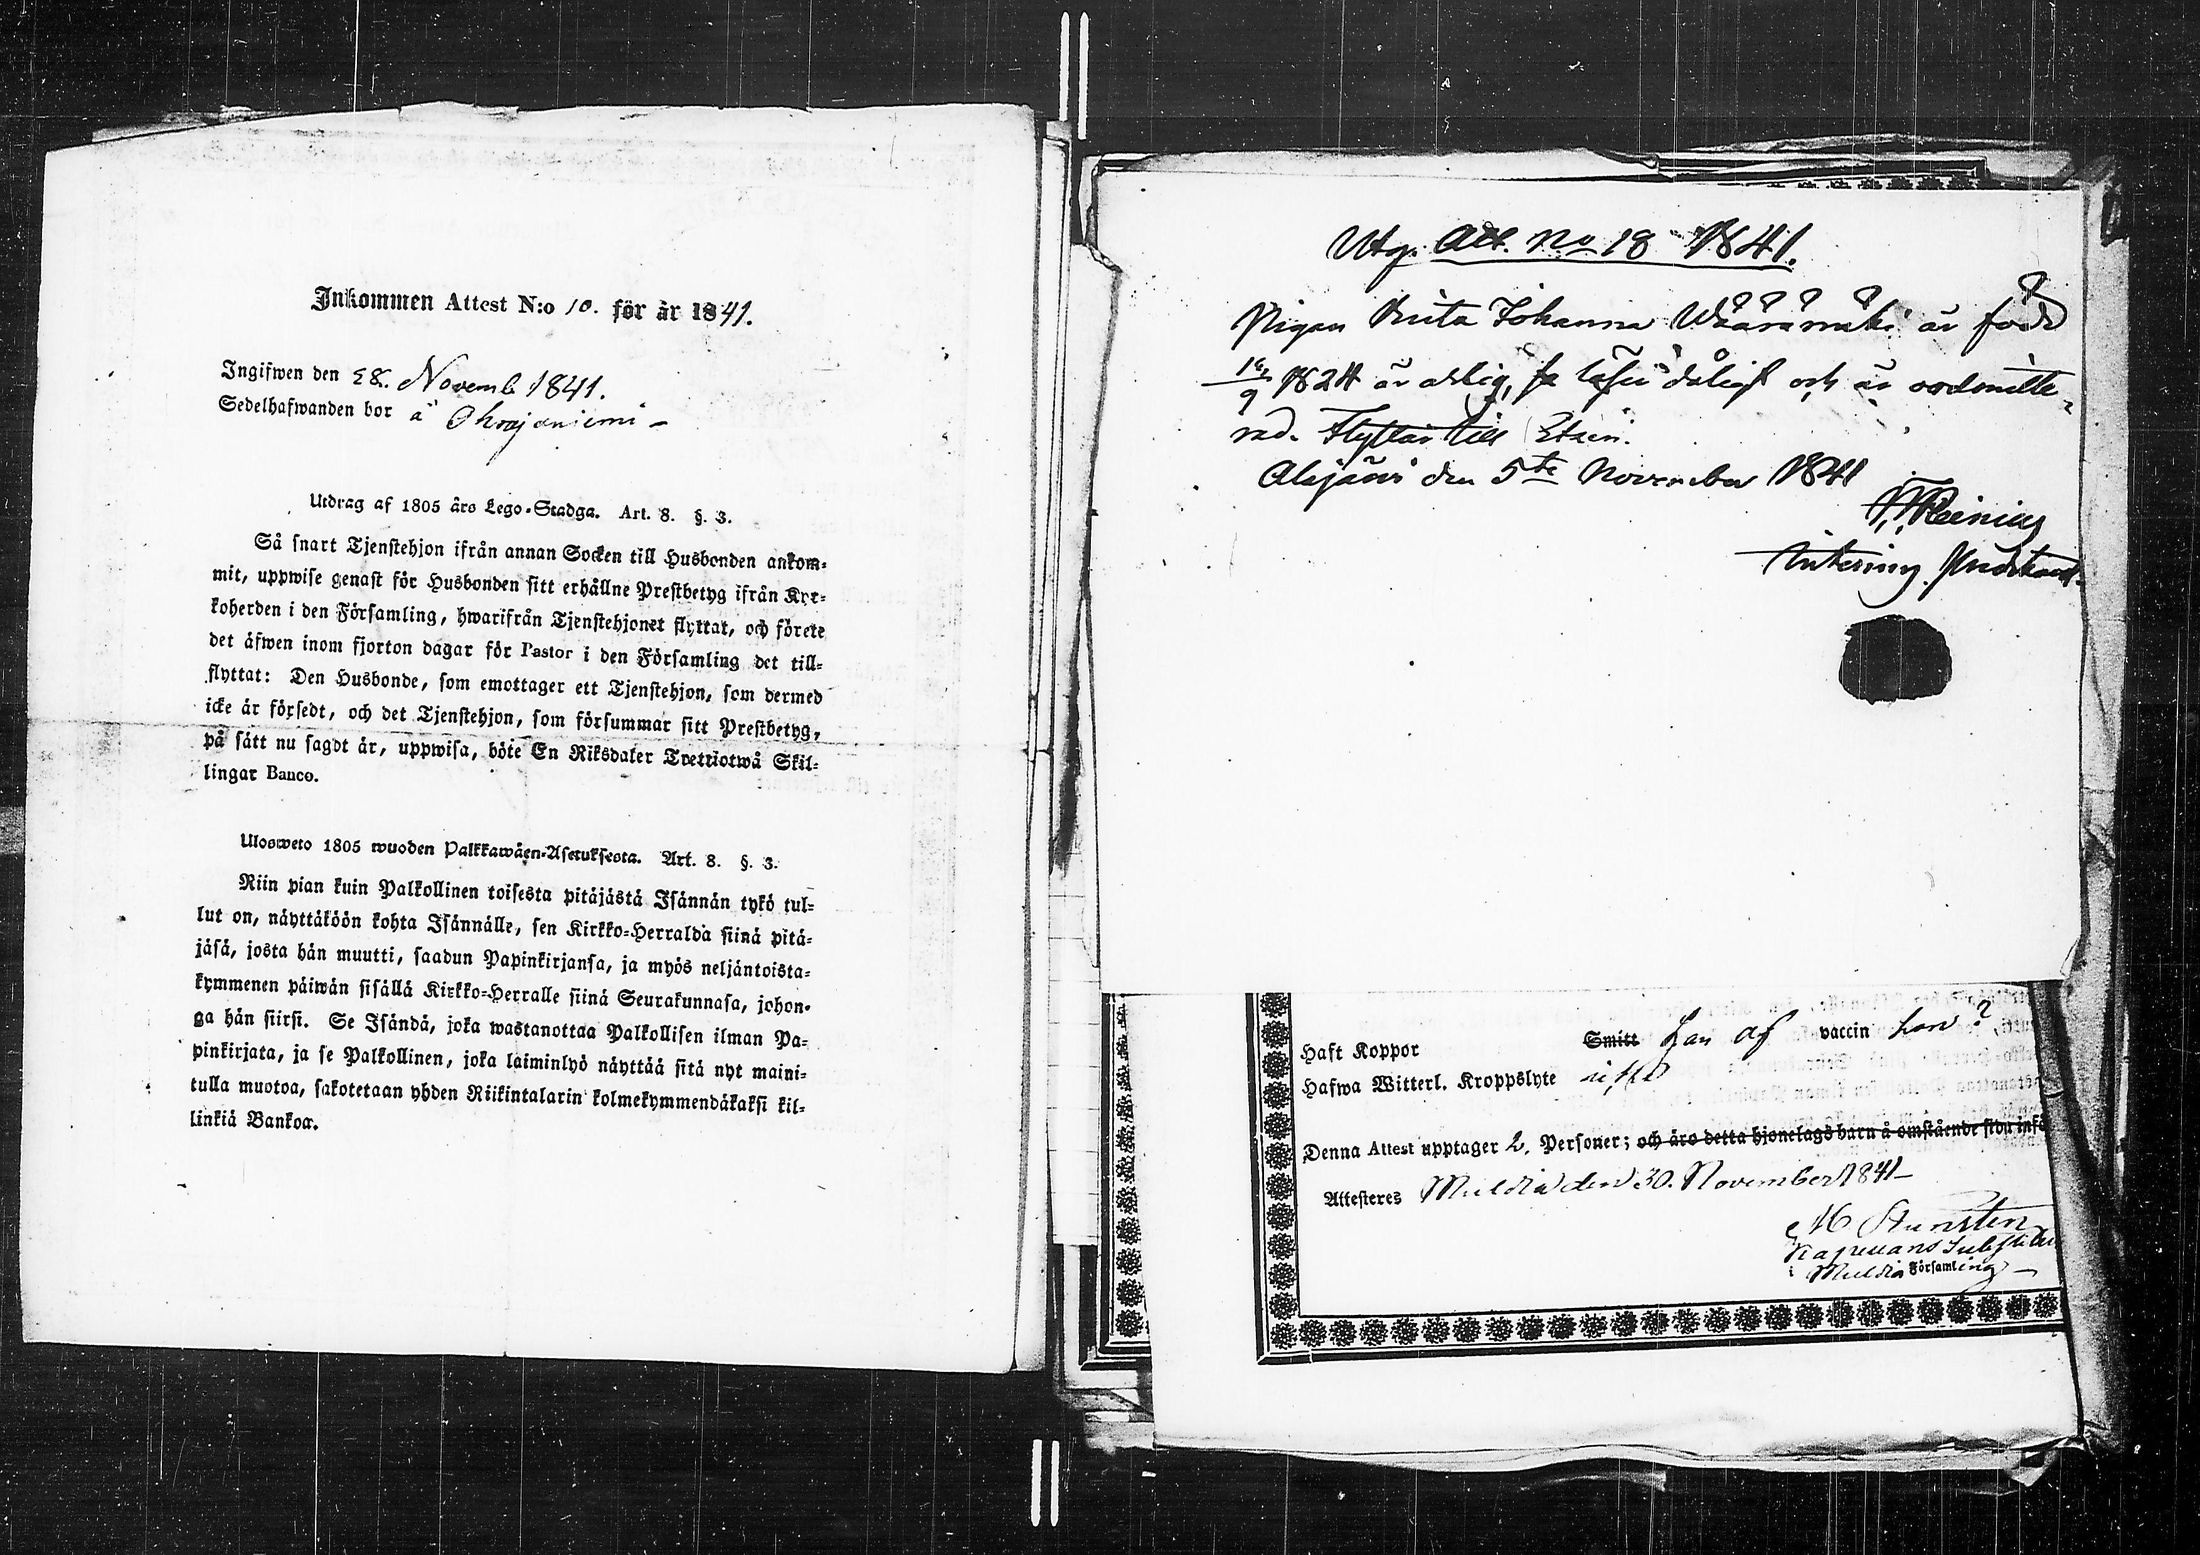 Inkommen Attest N:o 10. för år 1841.
Ingifwen den 28. Novemb 1841.
Sedelhafwanden bor å Ohrajaniemi –
Utdrag af 1805 års Lego-Stadga. Art. 8. §. 3.
Så snart Tjenstehjon ifrån annan Socken till Husbonden ankom-
mit, uppwise genast för Husbonden sitt erhållne Prestbetyg ifrån Kyr-
koherden i den Församling, hwarifrån Tjenstehjonet flyttat, och förete
det äfwen inom fjorton dagar för Pastor i den Församling det till-
flyttat: Den Husbonde, som emottager ett Tjenstehjon, som dermed
icke är försedt, och det Tjenstehjon, som försummar sitt Prestbetyg,
på sätt nu sagdt är, uppwisa, böte En Riksdaler Trettiotwå Skil-
lingar Banco.
Ulosweto 1805 wuoden Palkkawäen-Asetuksesta. Art. 8. §. 3.
Niin pian kuin Palkollinen toisesta pitäjästä Isännän tykö tul-
lut on, näyttäköön kohta Isännälle, sen Kirkko-Herralda siinä pitä-
jäsä, josta hän muutti, saadun Papinkirjansa, ja myös neljäntoista-
kymmenen päiwän sisällä Kirkko-Herralle siinä Seurakunnasa, johon-
ga hän siirsi. Se Isändä, joka wastanottaa Palkollisen ilman Pa-
pinkirjata, ja se Palkollinen, joka laiminlyö näyttää sitä nyt maini-
tulla muotoa, sakotetaan yhden Riikintalarin kolmekymmendäkaksi kil-
linkiä Bankoa.
Utg. Att. No 18 1841.
Pigan Brita Johanna Wääränäki är född
1824 är ärlig, läser dåligt och är oadmitte-
rad. Flyttar till Etseri.
Alajärvi den 5te November 1841
Haft Koppor Smitt han af vaccin hon?
Hafwa Witterl. Kroppslyte
Denna Attest upptager 2. Personer; och äro detta hjonelags barn å omstående sidu
Attesteres Muldia den 30. November 1841 –
Kapellans
i Muldia Församling –